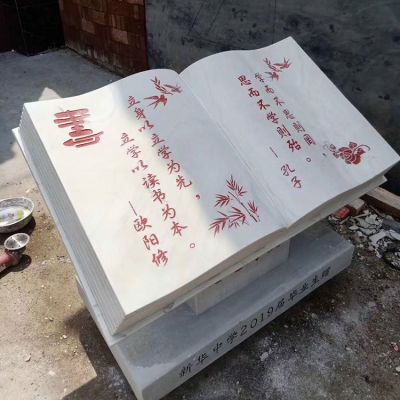 学而不思则罔。
思而不学则殆
—孔子
立身以立学为先，
立学以读书为本。
—欧阳修
書
新华中学2019届毕业生赠